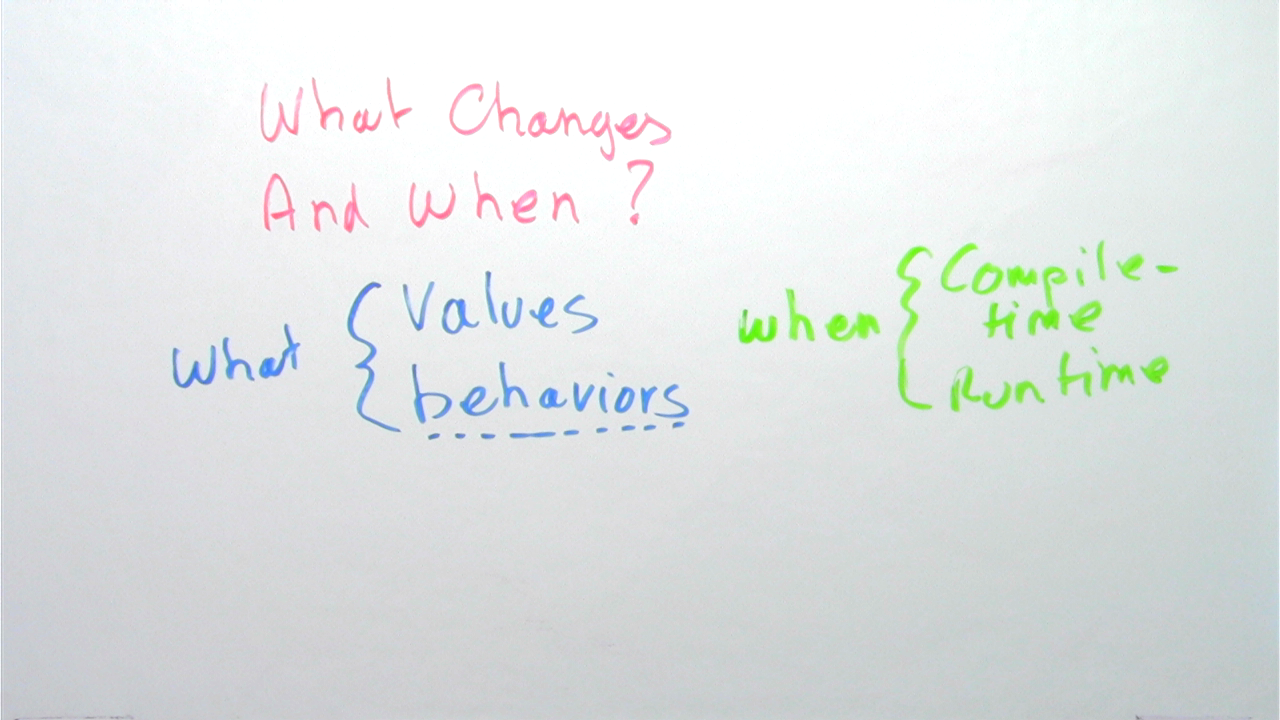 What Changes
And When ?
What { Values
behaviors
when { Compile-
time
Runtime